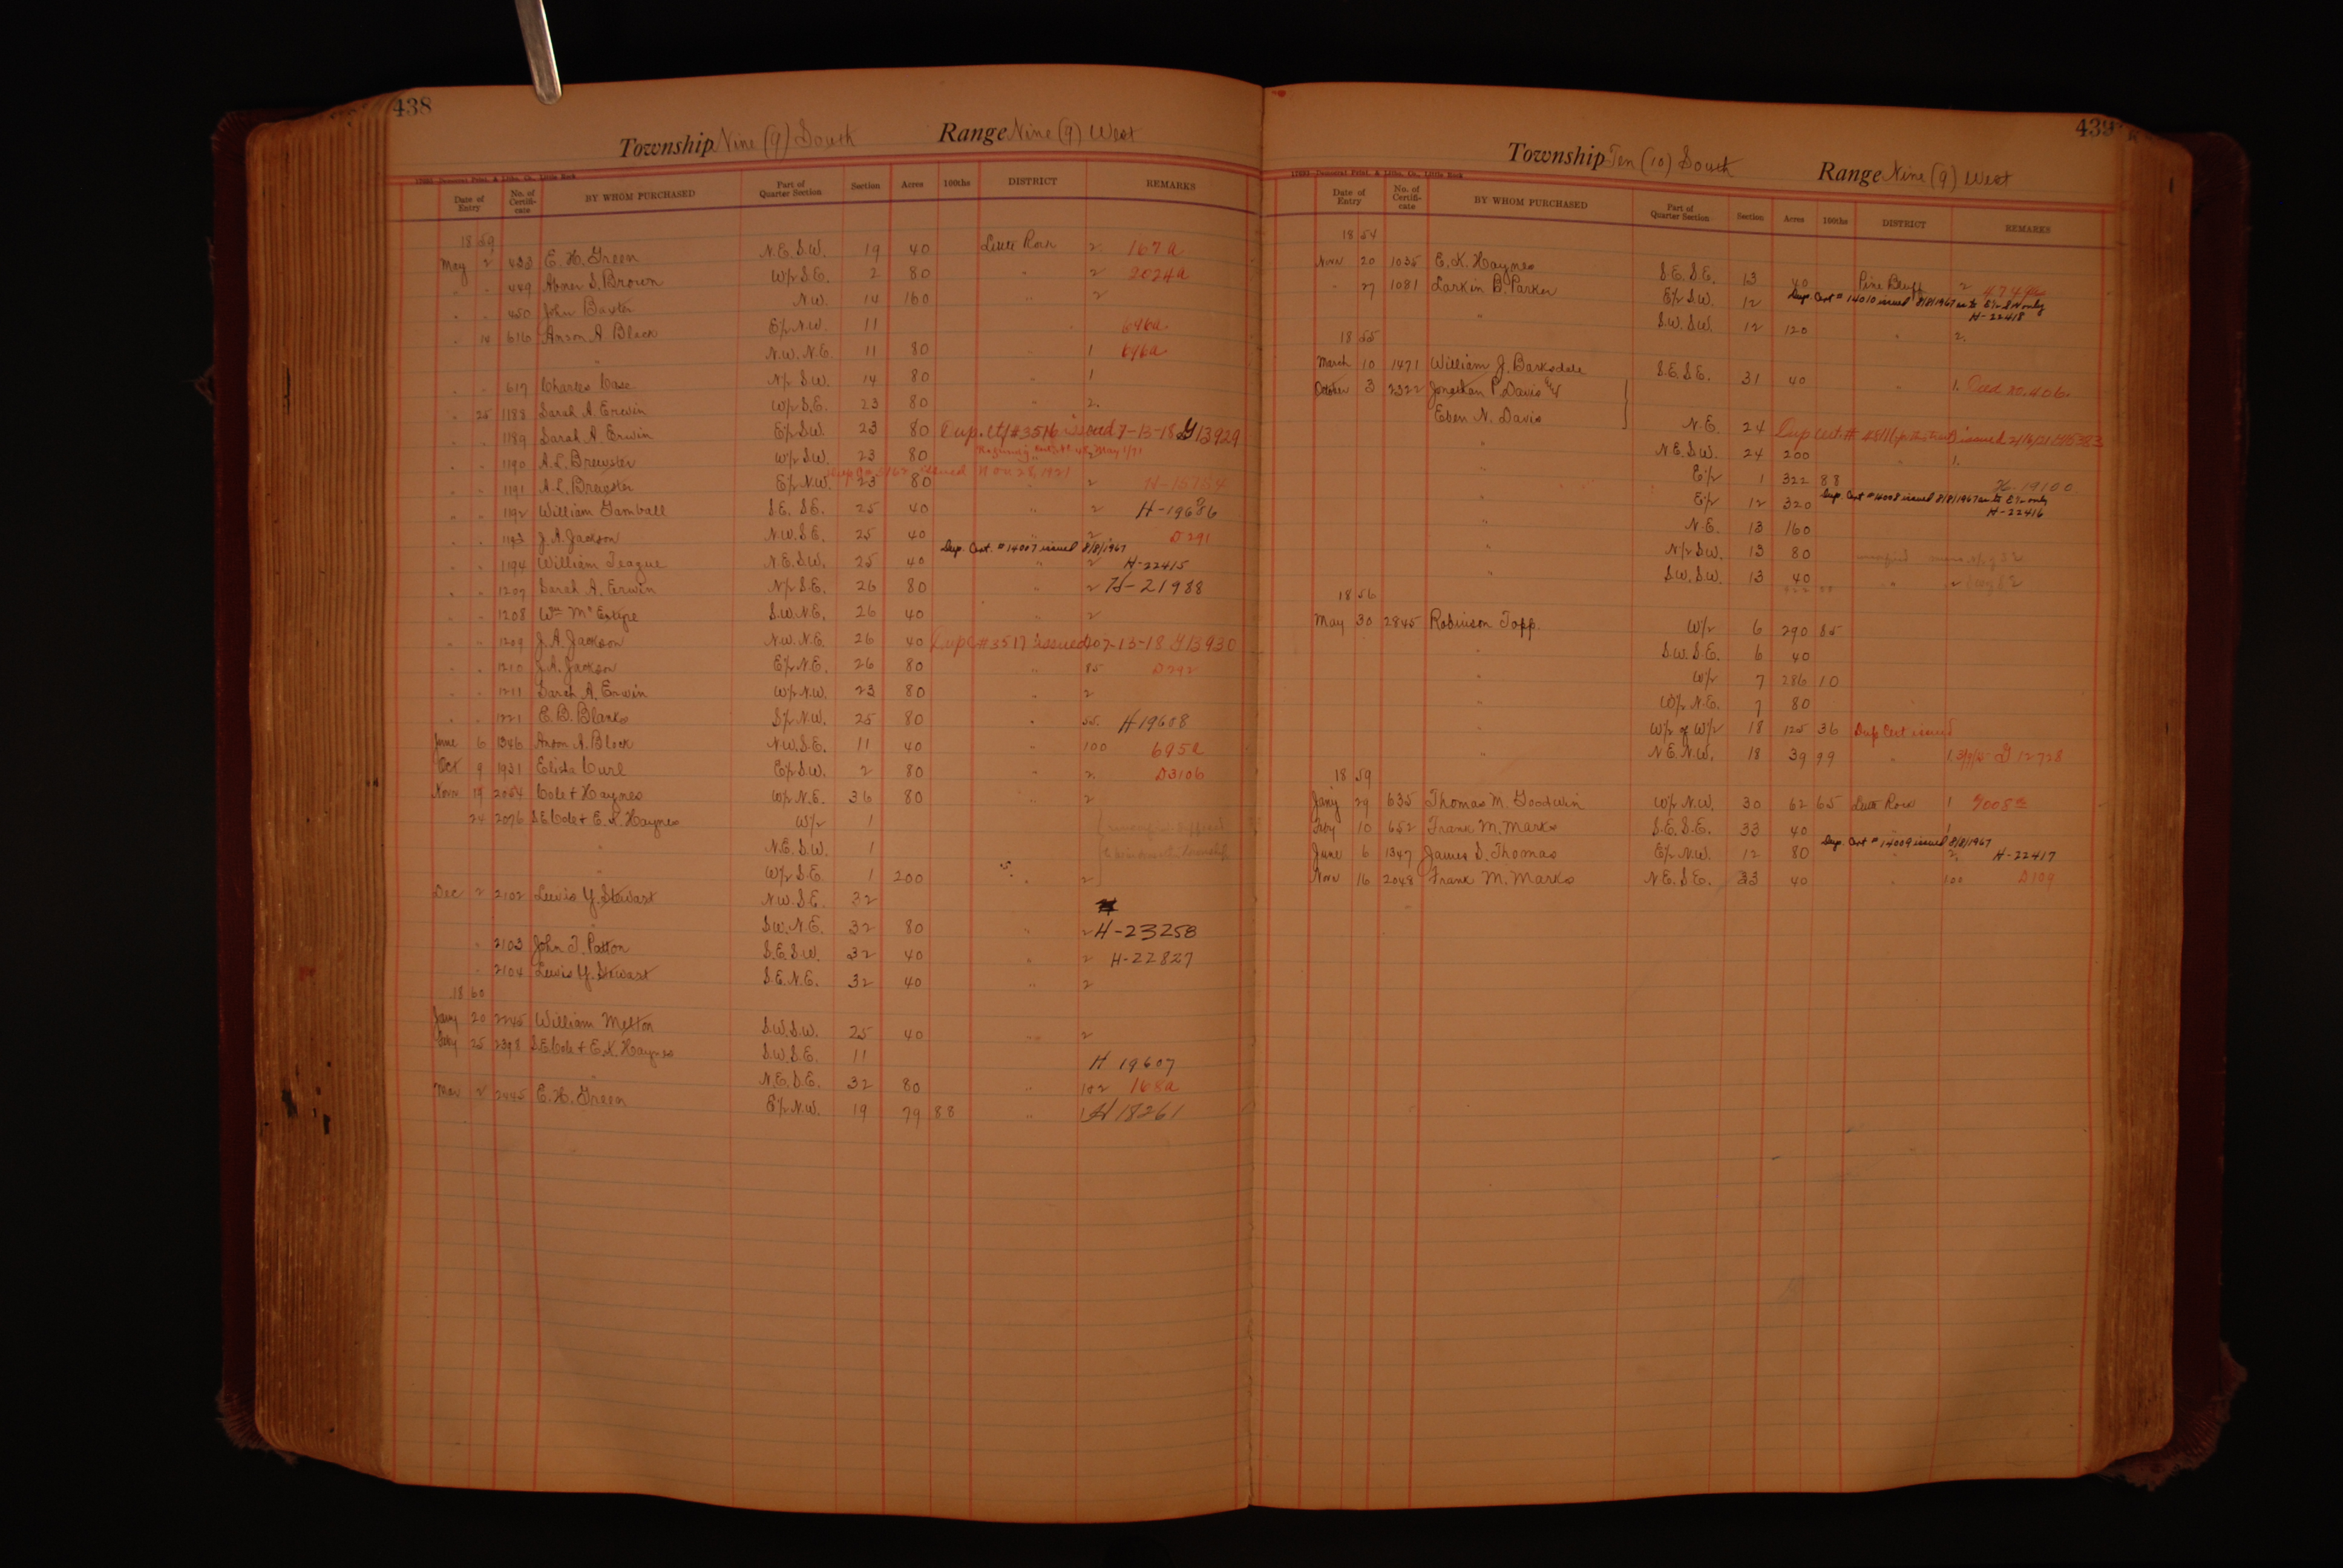 438
Township Nine (9) South Range Nine (9) West
Date of Entry No. of Certificate BY WHOM PURCHASED Part of Quarter Section Section Acres 100ths DISTRICT REMARKS
1859
May 2 433 E. H. Green N.E. S.W. 19 40 Little Rock 2. 167a
" " 449 Abner S. Brown W/2 S.E. 2 80 " 2 2024a
" " 450 John Baxter N.W. 14 160 " 2
" 14 616 Anson A. Black E/2 N.W. 11 " 696a
" N.W. N.E. 11 80 1 696a
" " 617 Charles Case N/2 S.W. 14 80 " 1
" 25 1188 Sarah A. Erwin W/2 S.E. 23 80 " 2.
" " 1189 Sarah A. Erwin E/2 S.W. 23 80 Dup. Ctf #3516 issued 7-13-18 G13929
" " 1190 A. L. Brewster W/2 S.W. 23 80
issued Nov. 28, 1921
" " 1191 A. L. Brewster E/2 N.W. 23 80 " 2
" " 1192 William Gamball S.E. S.E. 25 40 " 2 H-19686
" " 1193 J. A. Jackson N.W. S.E. 25 40 2 D291
Dup. Cert. # 14007 issued 8/8/1967
" " 1194 William Teague N.E. S.W. 25 40 " 2 H-22415
" " 1207 Sarah A. Erwin N/2 S.E. 26 80 " 2 H-21988
" " 1208 Wm McEntyre S.W. N.E. 26 40 " 2
" " 1209 J. A. Jackson N.W. N.E. 26 40 Dup C #3517 issued 7-13-18 G13930
" " 1210 J. A. Jackson E/2 N.E. 26 80 " 85 D242
" " 1211 Sarah A. Erwin W/2 N.W. 23 80 " 2
" " 1221 E. B. Blanks S/2 N.W. 25 80 " H19608
June 6 1346 Anson A. Black N.W. S.E. 11 40 " 100 695a
Oct 9 1931 Elisha Curl E/2 S.W. 2 80 " 2. D3106
Novr 19 2054 Cole & Haynes W/2 N.E. 36 80 " 2
24 2076 S E Cole & E. K. Haynes W/2 1
" N.E. S.W. 1
" W/2 S.E. 1 200 " 2
Dec 2 2102 Lewis Y. Stewart N.W. S.E. 32
" S.W. N.E. 32 80 " 2 H-23258
" 2103 John T. Patton S.E. S.W. 32 40 2 H-22827
" 2104 Lewis Y. Stewart S.E. N.E. 32 40 " 2
1860
Jany 20 2245 William Melton S.W. S.W. 25 40 " 2
Feby 25 2398 S E Cole & E. K. Haynes S.W. S.E. 11 H 19607
" N.E. S.E. 32 80 " 168a
Mar 2 2445 E. H. Green E/2 N.W. 19 79 88 " 1 H 18261
439
Township Ten (10) South Range Nine (9) West
Date of Entry No. of Certificate BY WHOM PURCHASED Part of Quarter Section Section Acres 100ths DISTRICT REMARKS
1854
Novr 20 1035 E. K. Haynes S.E. S.E. 13 40 Pine Bluff 2
Dup. Cert # 14010 issued 8/8/1967 as to E/2 SW only
" 27 1081 Larkin B. Parker E/2 S.W. 12 H-22418
" S.W. S.W. 12 120 " 2.
1855
March 10 1471 William J. Barksdale S.E. S.E. 31 40 " 1.
October 3 2322 Jonathan P. Davis &
Eben N. Davis N.E. 24
" N.E. S.W. 24 200 " 1.
" E/2 1 322 88 H-19100
Dup. Cert #14008 issued 8/8/1967 as to E/2 only
" E/2 12 320 H-22416
" N.E. 13 160
" N/2 S.W. 13 80
" S.W. S.W. 13 40 " 2
1856
May 30 2845 Robinson Topp. W/2 6 290 85
" S.W. S.E. 6 40
" W/2 7 286 10
" W/2 N.E. 7 80
" W/2 of W/2 18 125 36 Dup Cert issued
" N.E. N.W. 18 39 99 " G 12728
1859
Jany 29 635 Thomas M. Goodwin W/2 N.W. 30 62 65 Little Rock 1
Feby 10 652 Frank M. Marks S.E. S.E. 33 40 1
Dup. Cert # 14009 issued 8/8/1967
June 6 1347 James S. Thomas E/2 N.W. 12 80 " 2. H-22417
Novr 16 2048 Frank M. Marks N.E. S.E. 33 40 " 100 D109